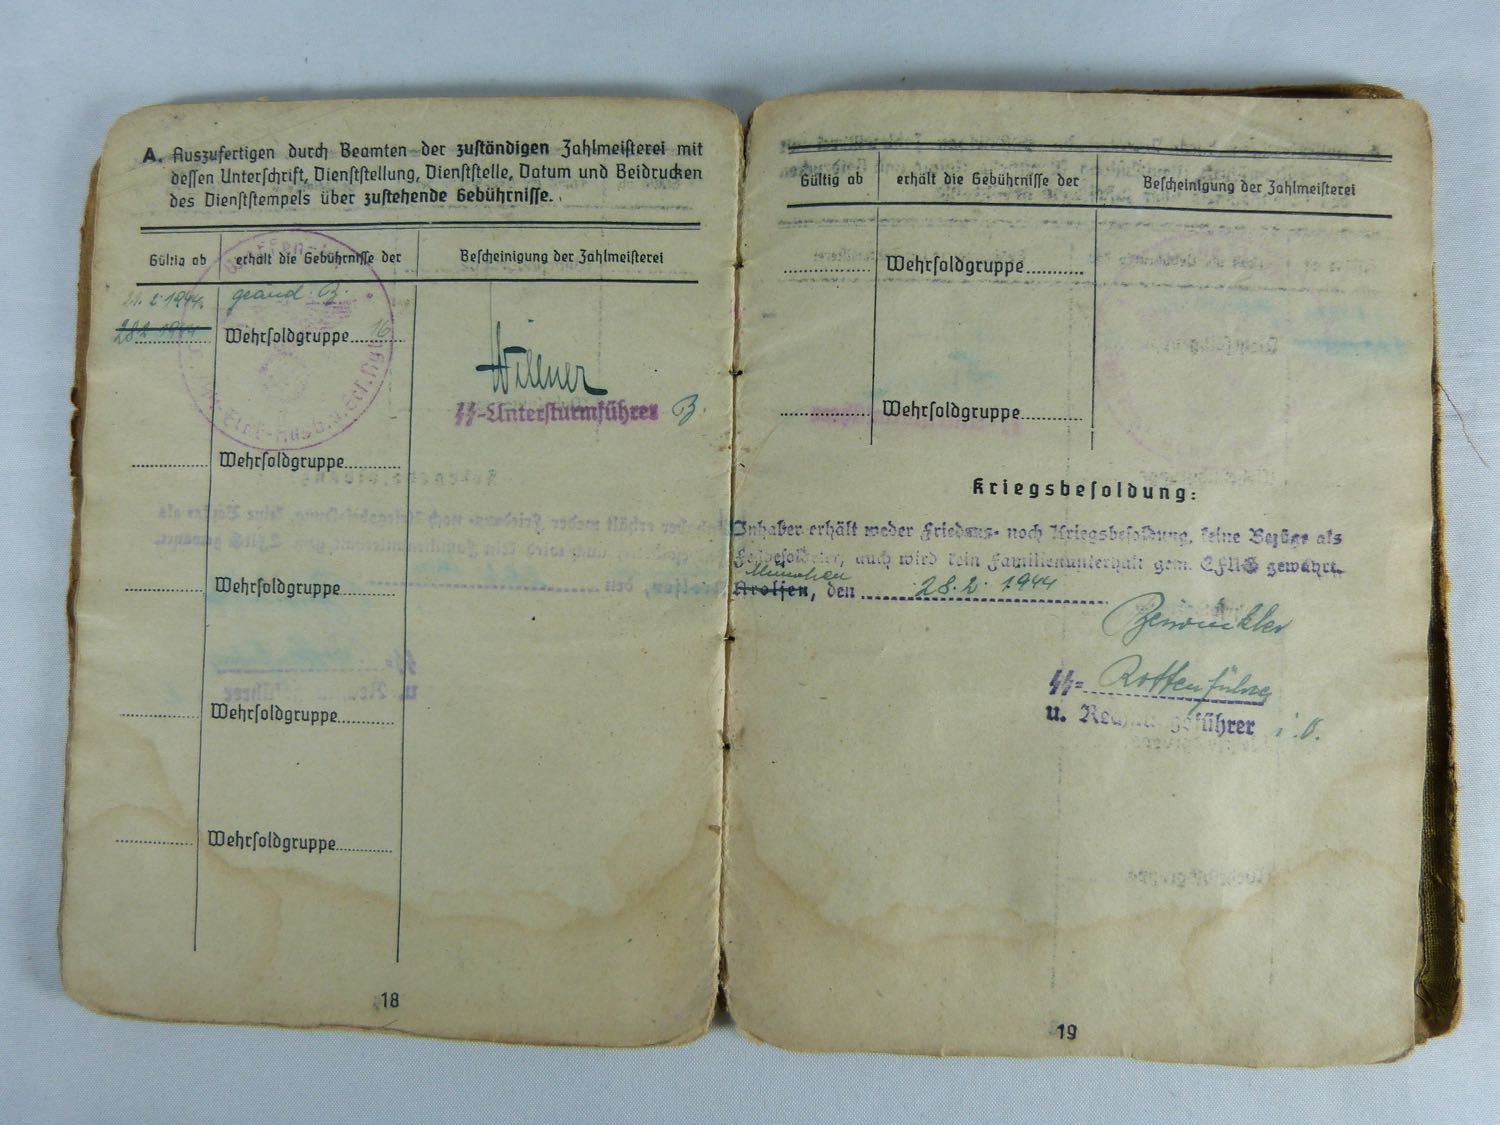 A. Auszufertigen durch Beamten der zuständigen Zahlmeisterei mit
dessen Unterschrift, Dienststellung, Dienststelle, Datum und Beidrucken
des Dienststempels über zustehende Gebührnisse.
Gültig ab erhält die Gebührnisse der Bescheinigung der Zahlmeisterei
1944 geänd. B.
28.2.1944 Wehrsoldgruppe 16
Willner
SS-Untersturmführer B.
Wehrsoldgruppe
Wehrsoldgruppe
Wehrsoldgruppe
Wehrsoldgruppe
18
Gültig ab erhält die Gebührnisse der Bescheinigung der Zahlmeisterei
Wehrsoldgruppe
Wehrsoldgruppe
Kriegsbesoldung:
Inhaber erhält weder Friedens- noch Kriegsbesoldung, keine Bezüge als
Festbesoldeter, auch wird kein Familienunterhalt gem. EFUG gewährt.
München
Arolsen, den 28.2.1944
SS- Rottenführer
u. Rechnungsführer
19